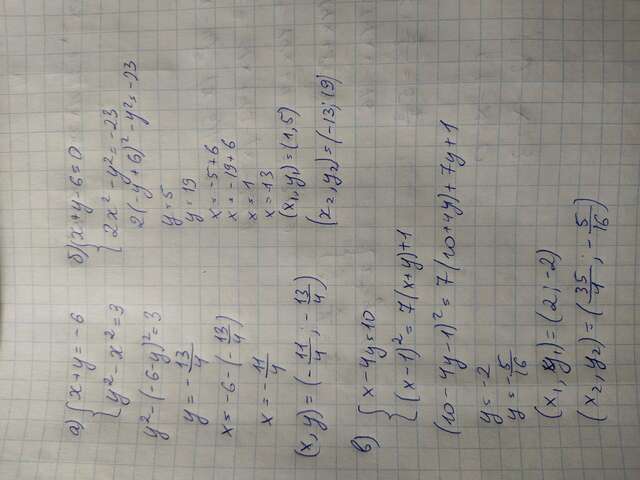 а) { x+y=-6
y²-x²=3
y²-(-6-y)²=3
y=-13/4
x=-6-(-13/4)
x=-11/4
(x,y)=(-11/4; -13/4)
б) { x+y-6=0
2x²-y²=-23
2(-y+6)²-y²=-23
y=5
y=19
x=-5+6
x=-19+6
x=1
x=13
(x₁,y₁)=(1,5)
(x₂,y₂)=(-13;19)
в) { x-4y=10
(x-1)²=7(x+y)+1
(10-4y-1)²=7(10+4y)+7y+1
y=-2
y=-5/16
(x₁,y₁)=(2;-2)
(x₂,y₂)=(35/4; -5/16)